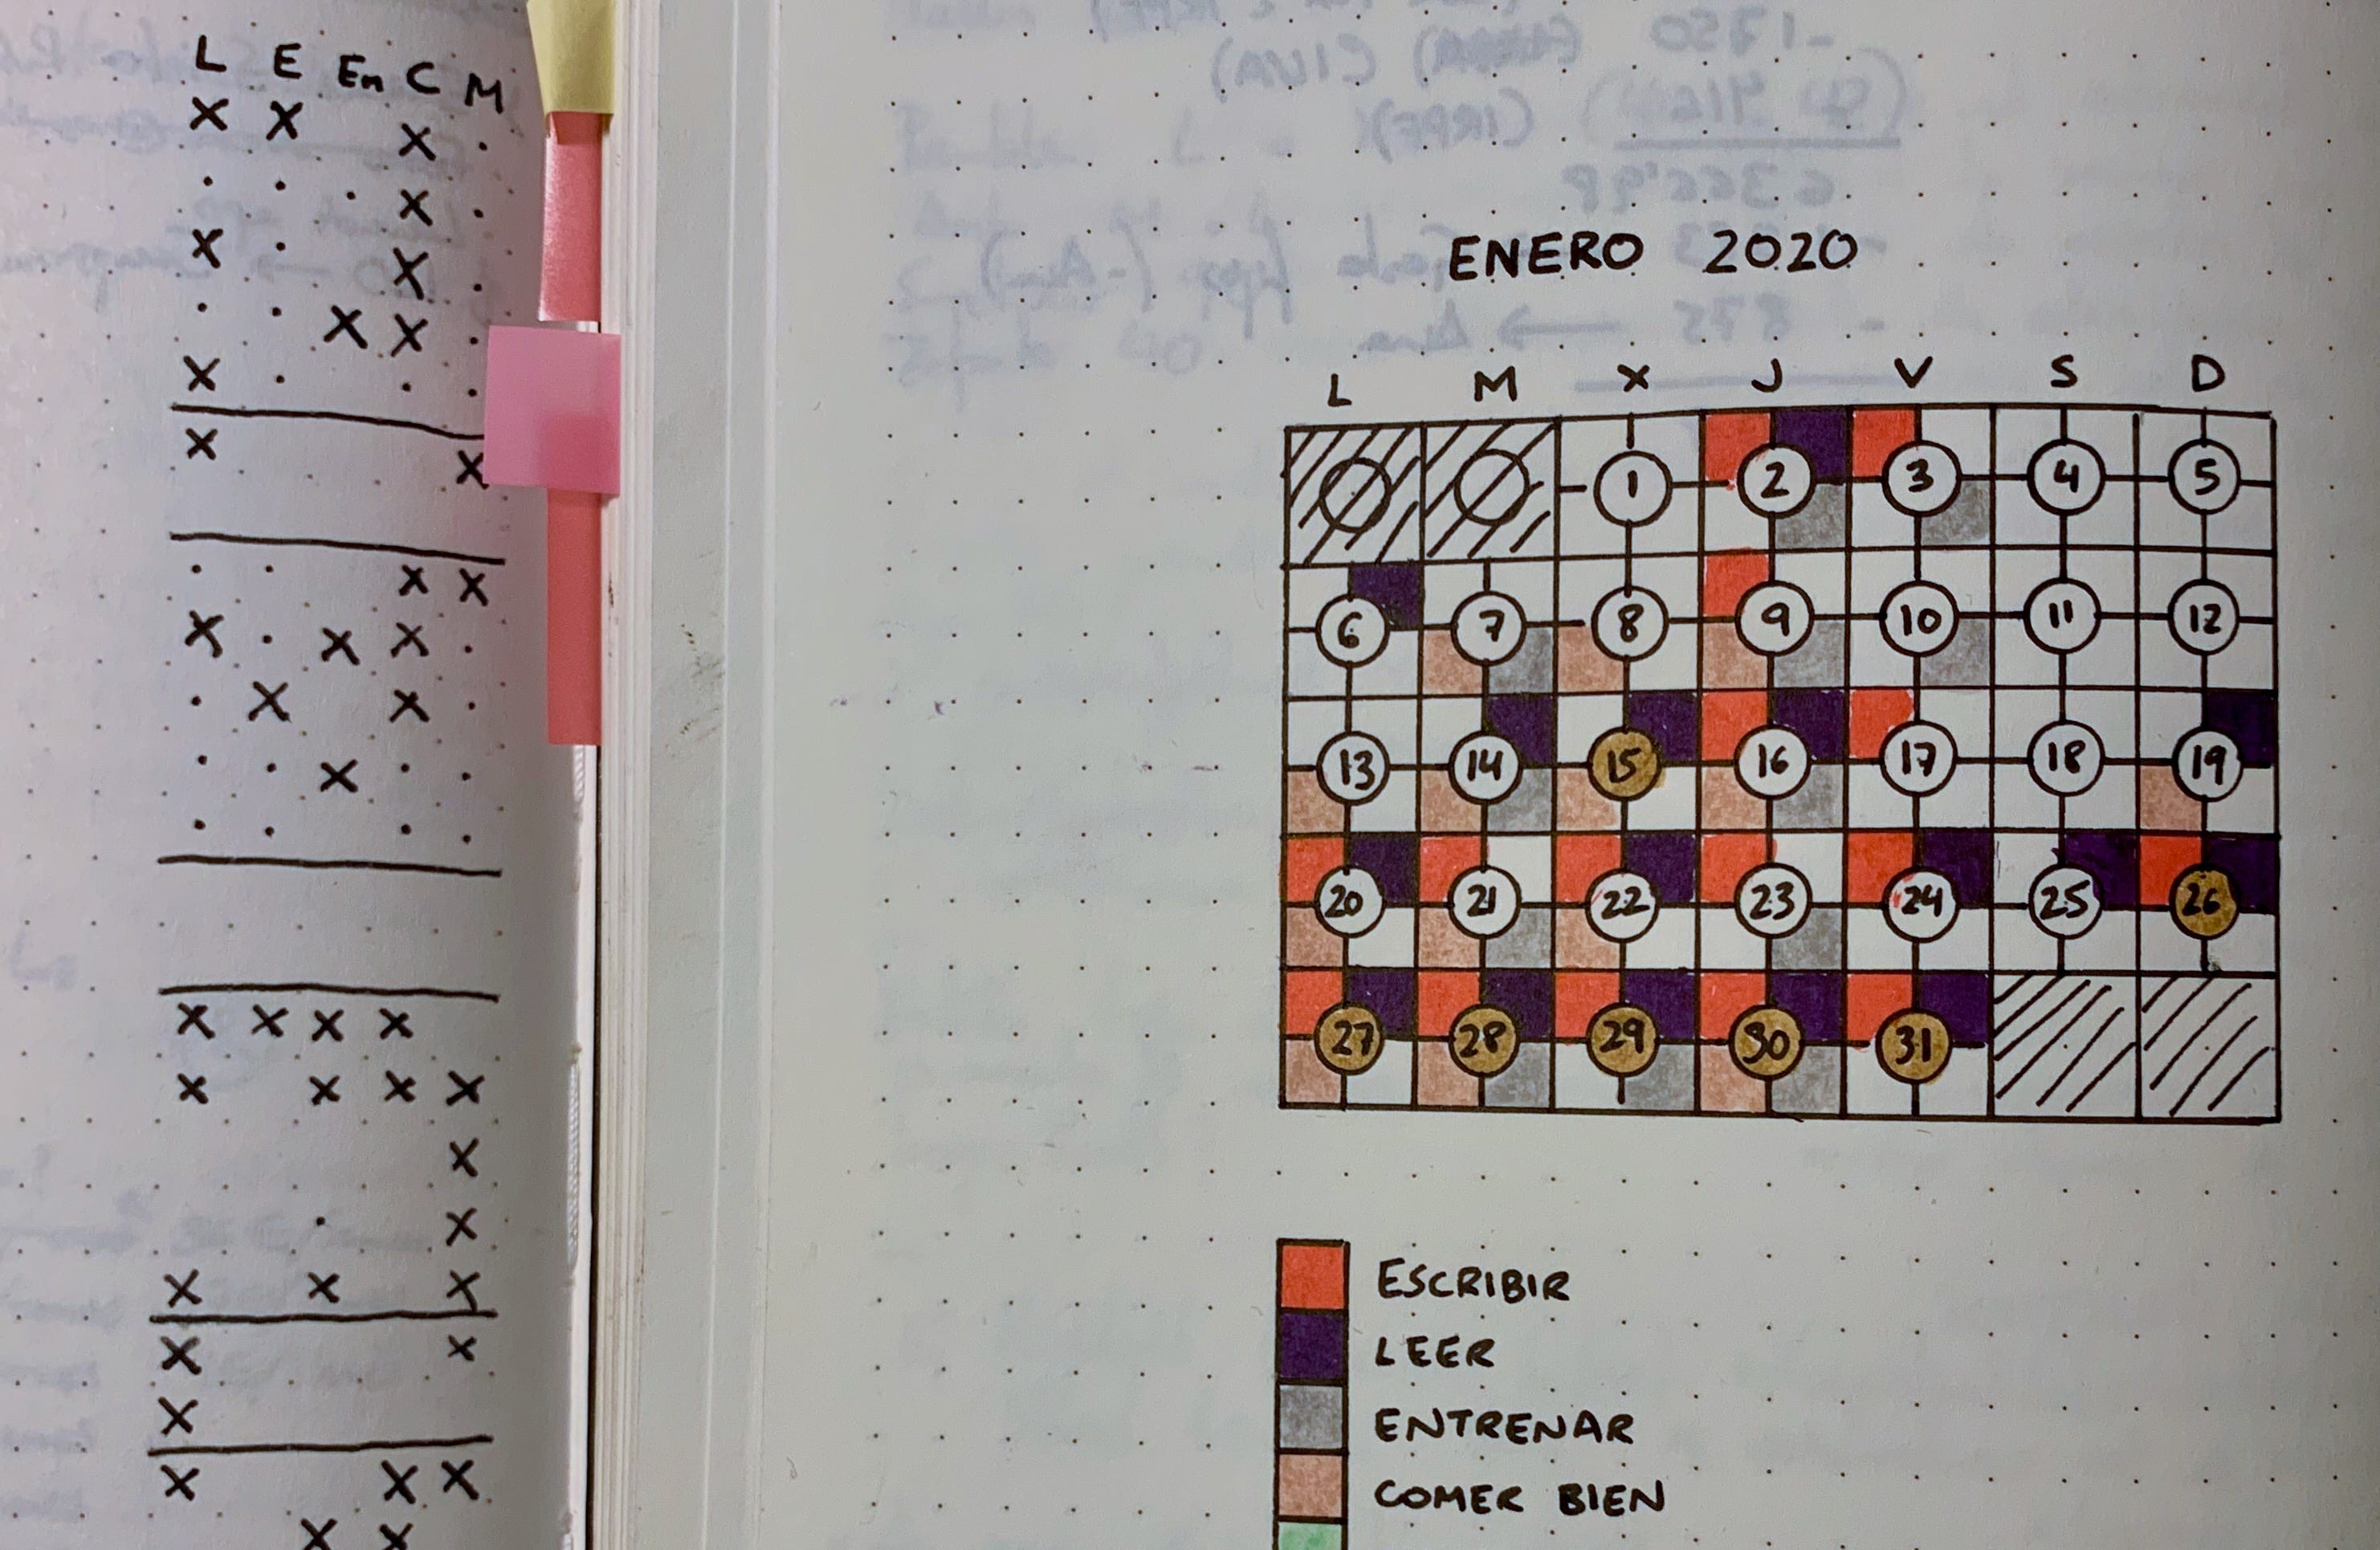 L E En C M
X X X
X
X X
X X
X
X
X
X X
X X X
X X
X
X X X X
X X X X
X
X
X X X
X X
X
X X X
X X
ENERO 2020
L M X J V S D
1 2 3 4 5
6 7 8 9 10 11 12
13 14 15 16 17 18 19
20 21 22 23 24 25 26
27 28 29 30 31
ESCRIBIR
LEER
ENTRENAR
COMER BIEN